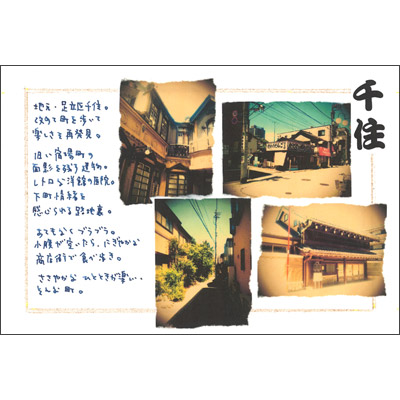 千住
地元・足立区千住。
改めて町を歩いて
楽しさ再発見。
旧い宿場町の
面影を残す建物。
レトロな洋館の医院。
下町情緒を
感じられる路地裏。
あてもなくブラブラ。
小腹が空いたら、にぎやかな
商店街で食べ歩き。
ささやかな ひとときが楽しい、
そんな町。